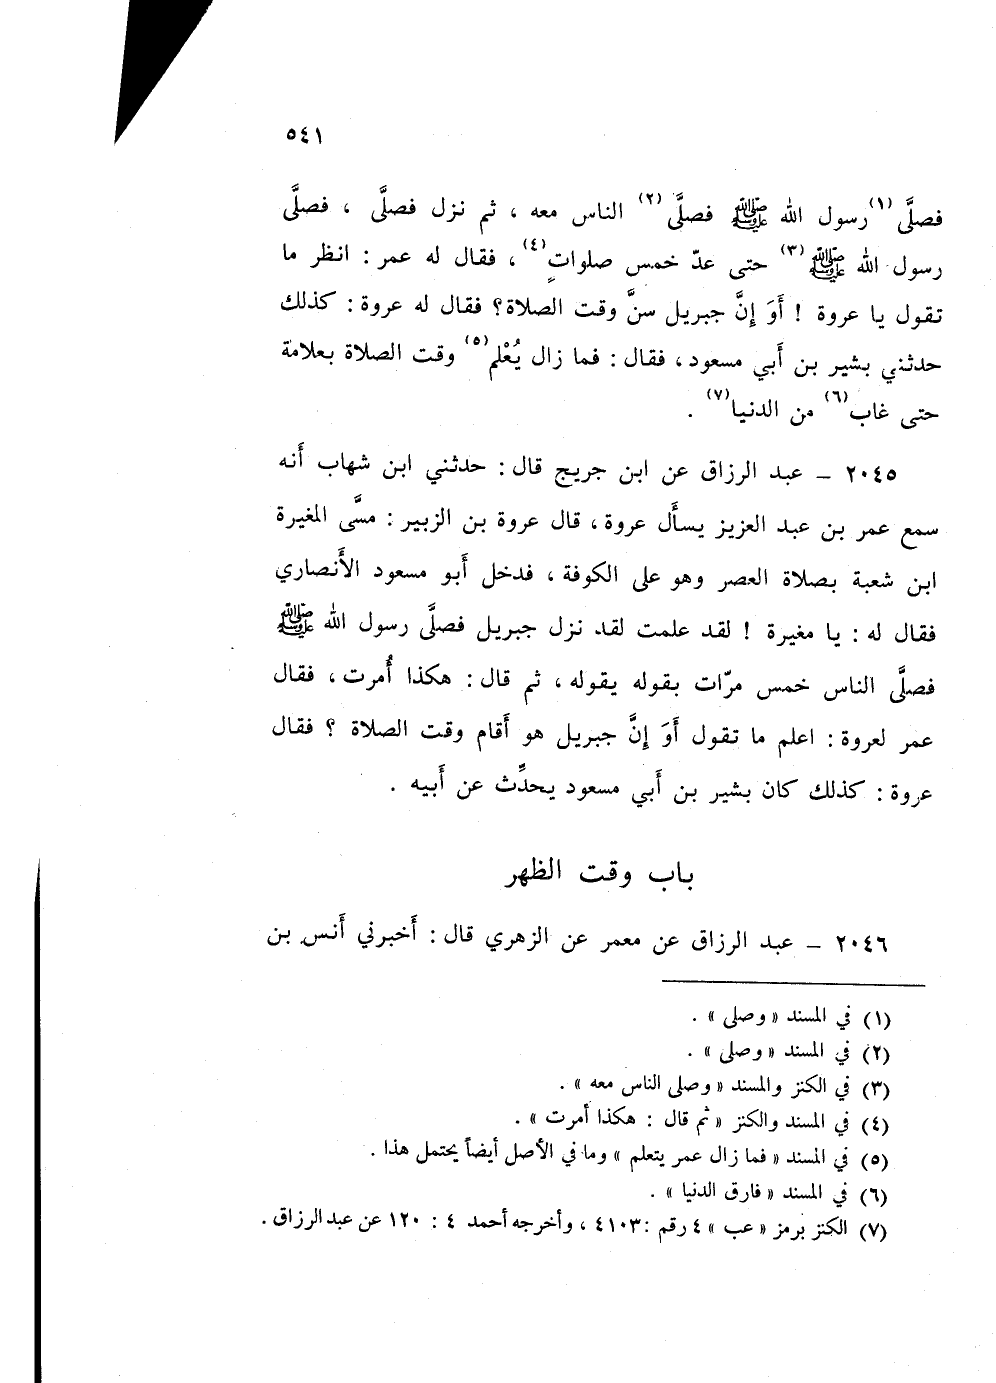 ٥٤١
فصلَّى(١) رسول الله ﷺ فصلَّى(٢) الناس معه ، ثم نزل فصلَّى ، فصلَّى
رسول الله ﷺ(٣) حتى عدّ خمس صلواتٍ(٤) ، فقال له عمر : انظر ما
تقول يا عروة ! أَوَ إِنَّ جبريل سنَّ وقت الصلاة؟ فقال له عروة : كذلك
حدثني بشير بن أَبي مسعود ، فقال : فما زال يُعْلم(٥) وقت الصلاة بعلامة
حتى غاب(٦) من الدنيا(٧) .
٢٠٤٥ – عبد الرزاق عن ابن جريج قال : حدثني ابن شهاب أَنه
سمع عمر بن عبد العزيز يسأَل عروة ، قال عروة بن الزبير : مسَّى المغيرة
ابن شعبة بصلاة العصر وهو على الكوفة ، فدخل أَبو مسعود الأَنصاري
فقال له : يا مغيرة ! لقد علمت لقد نزل جبريل فصلَّى رسول الله ﷺ
فصلَّى الناس خمس مرّات بقوله يقوله ، ثم قال : هكذا أُمرت ، فقال
عمر لعروة : اعلم ما تقول أَوَ إِنَّ جبريل هو أَقام وقت الصلاة ؟ فقال
عروة : كذلك كان بشير بن أَبي مسعود يحدِّث عن أَبيه .
باب وقت الظهر
٢٠٤٦ – عبد الرزاق عن معمر عن الزهري قال : أَخبرني أَنس بن
(١) في المسند « وصلى » .
(٢) في المسند « وصلى » .
(٣) في الكنز والمسند « وصلى الناس معه » .
(٤) في المسند والكنز « ثم قال : هكذا أمرت » .
(٥) في المسند « فما زال عمر يتعلم » وما في الأصل أيضاً يحتمل هذا .
(٦) في المسند « فارق الدنيا » .
(٧) الكنز برمز « عب » ٤ رقم : ٤١٠٣ ، وأخرجه أحمد ٤ : ١٢٠ عن عبد الرزاق .